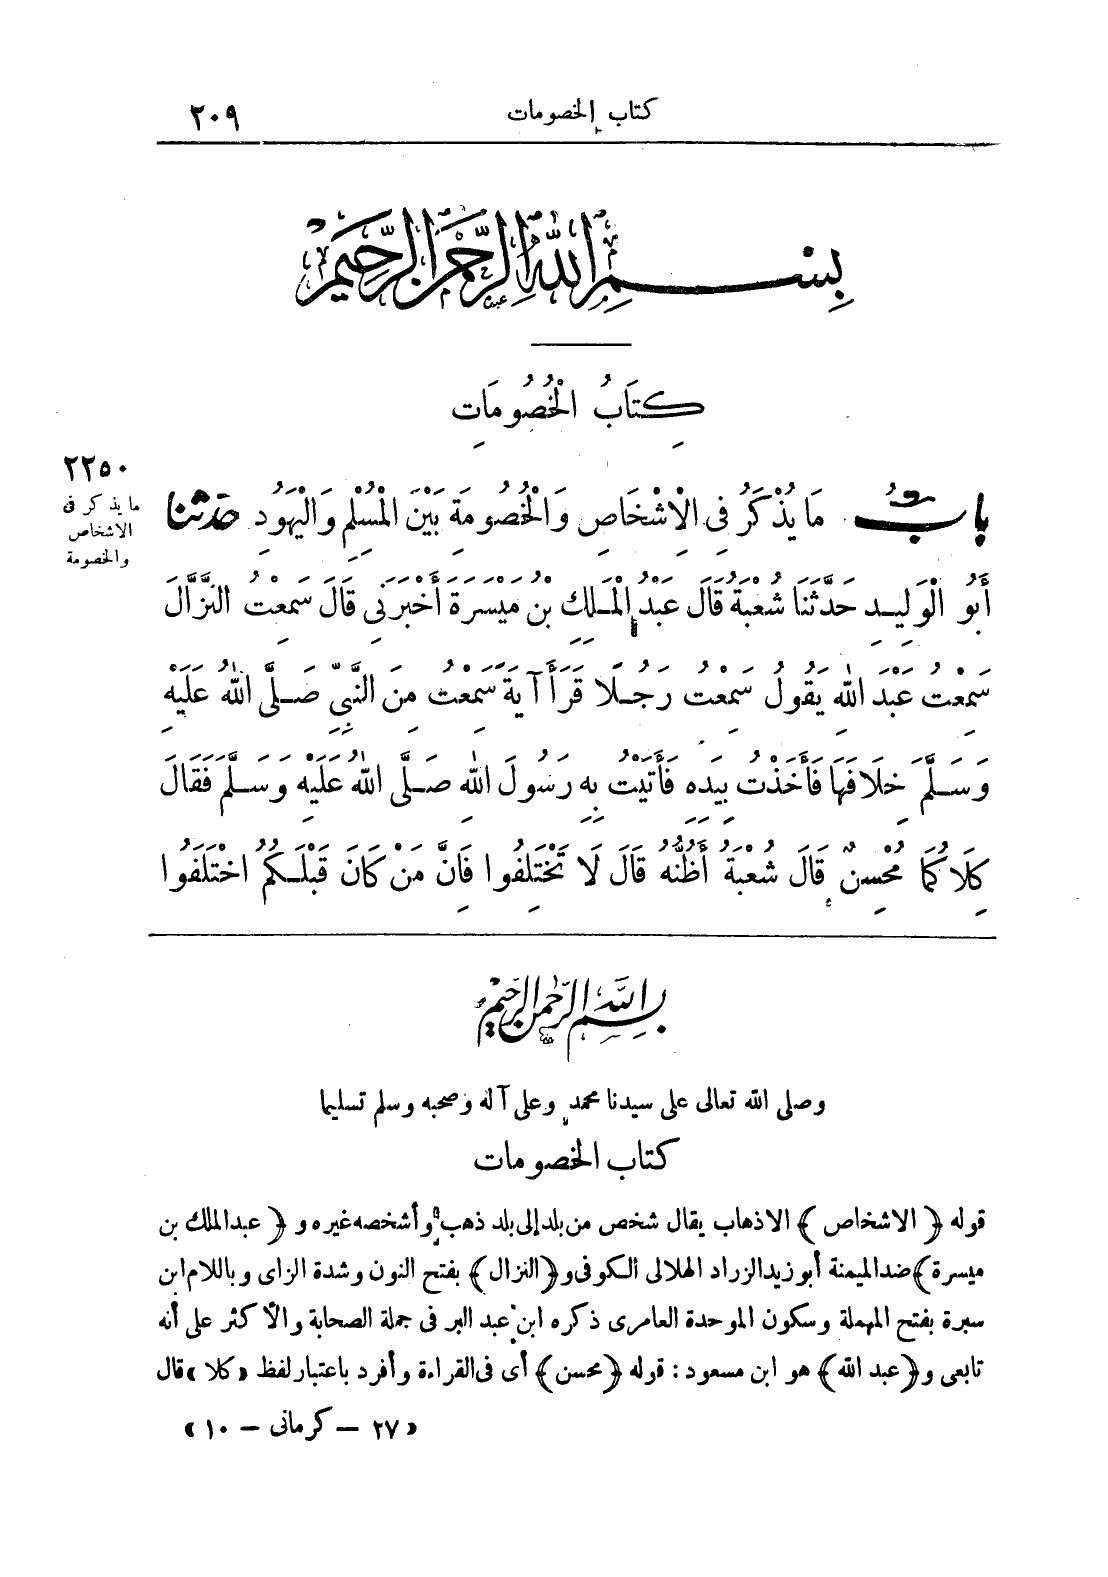 كتاب الخصومات
٢٠٩
بِسْمِ اللَّهِ الرَّحْمَنِ الرَّحِيمِ
كِتَابُ الْخُصُومَاتِ
٢٢٥٠
ما يذكر فى
الاشخاص
والخصومة
بَابُ مَا يُذْكَرُ فِى الْإِشْخَاصِ وَالْخُصُومَةِ بَيْنَ الْمُسْلِمِ وَالْيَهُودِ حَدَّثَنَا
أَبُو الْوَلِيدِ حَدَّثَنَا شُعْبَةُ قَالَ عَبْدُ الْمَلِكِ بْنُ مَيْسَرَةَ أَخْبَرَنِى قَالَ سَمِعْتُ النَّزَّالَ
سَمِعْتُ عَبْدَ اللهِ يَقُولُ سَمِعْتُ رَجُلًا قَرَأَ آيَةً سَمِعْتُ مِنَ النَّبِىِّ صَلَّى اللهُ عَلَيْهِ
وَسَلَّمَ خِلَافَهَا فَأَخَذْتُ بِيَدِهِ فَأَتَيْتُ بِهِ رَسُولَ اللهِ صَلَّى اللهُ عَلَيْهِ وَسَلَّمَ فَقَالَ
كِلَاكُمَا مُحْسِنٌ قَالَ شُعْبَةُ أَظُنُّهُ قَالَ لَا تَخْتَلِفُوا فَإِنَّ مَنْ كَانَ قَبْلَكُمُ اخْتَلَفُوا
بسم الله الرحمن الرحيم
وصلى الله تعالى على سيدنا محمد وعلى آله وصحبه وسلم تسليما
كتاب الخصومات
قوله ﴿الاشخاص﴾ الاذهاب يقال شخص من بلد إلى بلد ذهب وأشخصه غيره و ﴿عبد الملك بن
ميسرة﴾ ضد الميمنة أبو زيد الزراد الهلالى الكوفى و﴿النزال﴾ بفتح النون وشدة الزاى وباللام ابن
سبرة بفتح المهملة وسكون الموحدة العامرى ذكره ابن عبد البر فى جملة الصحابة والأكثر على أنه
تابعى و﴿عبد الله﴾ هو ابن مسعود: قوله ﴿محسن﴾ أى فى القراءة وأفرد باعتبار لفظ «كلا» قال
«٢٧ – كرمانى – ١٠»